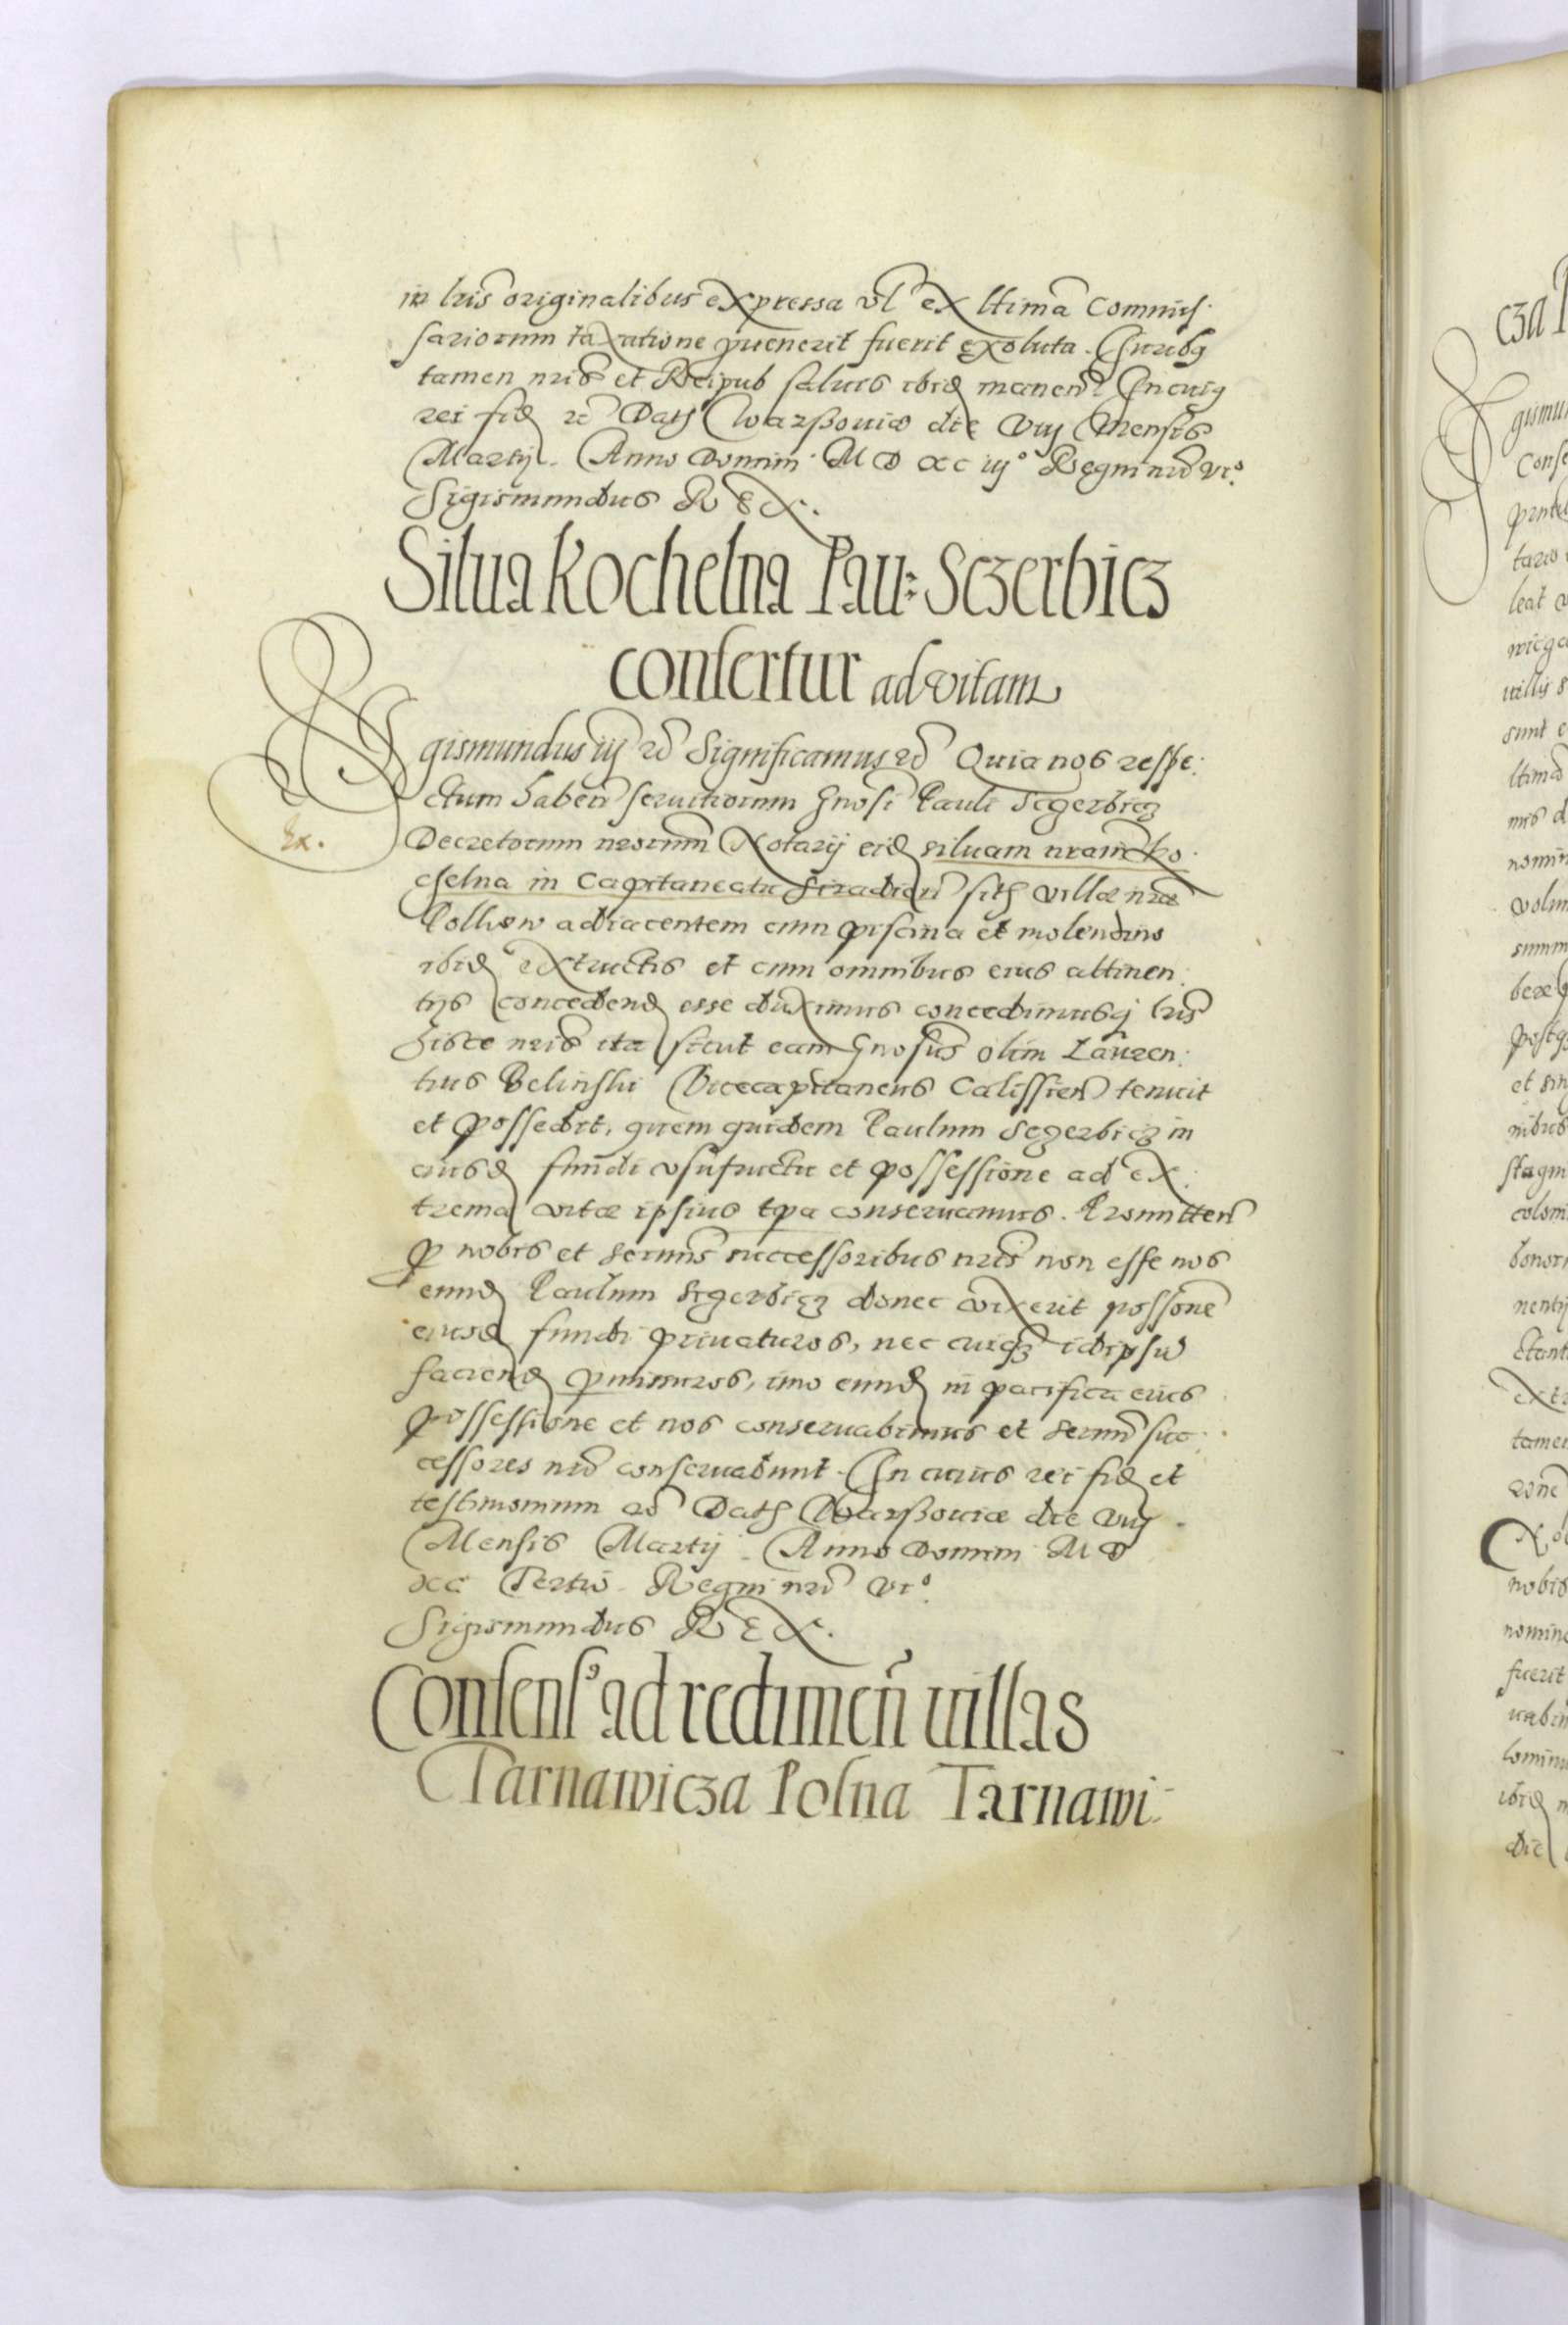 in lris originalibus expressa vl ex ltima Commis-
sariorum taxatione puenerit fuerit exoluta. Iuribq
tamen nris et Reipub saluis ibid manen. In cuiq
rei fid rc Dath Warßouiæ die viij Mensis
Martij. Anno Domini M D XC iij° Regni nri vi°.
Sigismundus REX.
Silua Kochelna Pau: Sczerbicz
confertur ad vitam
Sigismundus iij rc Significamus rc Quia nos respe:
ctum haben seruitiorum Gnosi Pauli Sczerbicz
Decretorum nrorum Notarij eid siluam nram Ko-
chelna in Capitaneatu Siradien sith villæ nræ
adiacentem cum piscina et molendino
ibid extructis et cum omnibus eius attinen:
tijs concedend esse duximus concedimusq lris
hisce nris ita sicut eam Gnosus olim Lauren:
tius Belinski Vicecapitaneus Calissien tenuit
et possedit, quem quidem Paulum Sczerbicz in
eiusd fundi vsufructu et possessione ad ex:
trema vitæ ipsius tpa conseruamus. Promitten
p nobis et sermis successoribus nris non esse nos
eund Paulum Sczerbicz donec vixerit possone
eiusd fundi priuaturos, nec cuiq idipsu
faciend pmissuros, imo eund in pacifica eius
possessione et nos conseruabimus et sermi suc:
cessores nri conseruabunt. In cuius rei fid et
testimonium rc Dath Warßouiæ die viij
Mensis Martij. Anno Domini M D
XC Tertio. Regni nri vi°.
Sigismundus REX.
Consens' ad redimen villas
Tarnawicza Polna Tarnawi-
Ex.